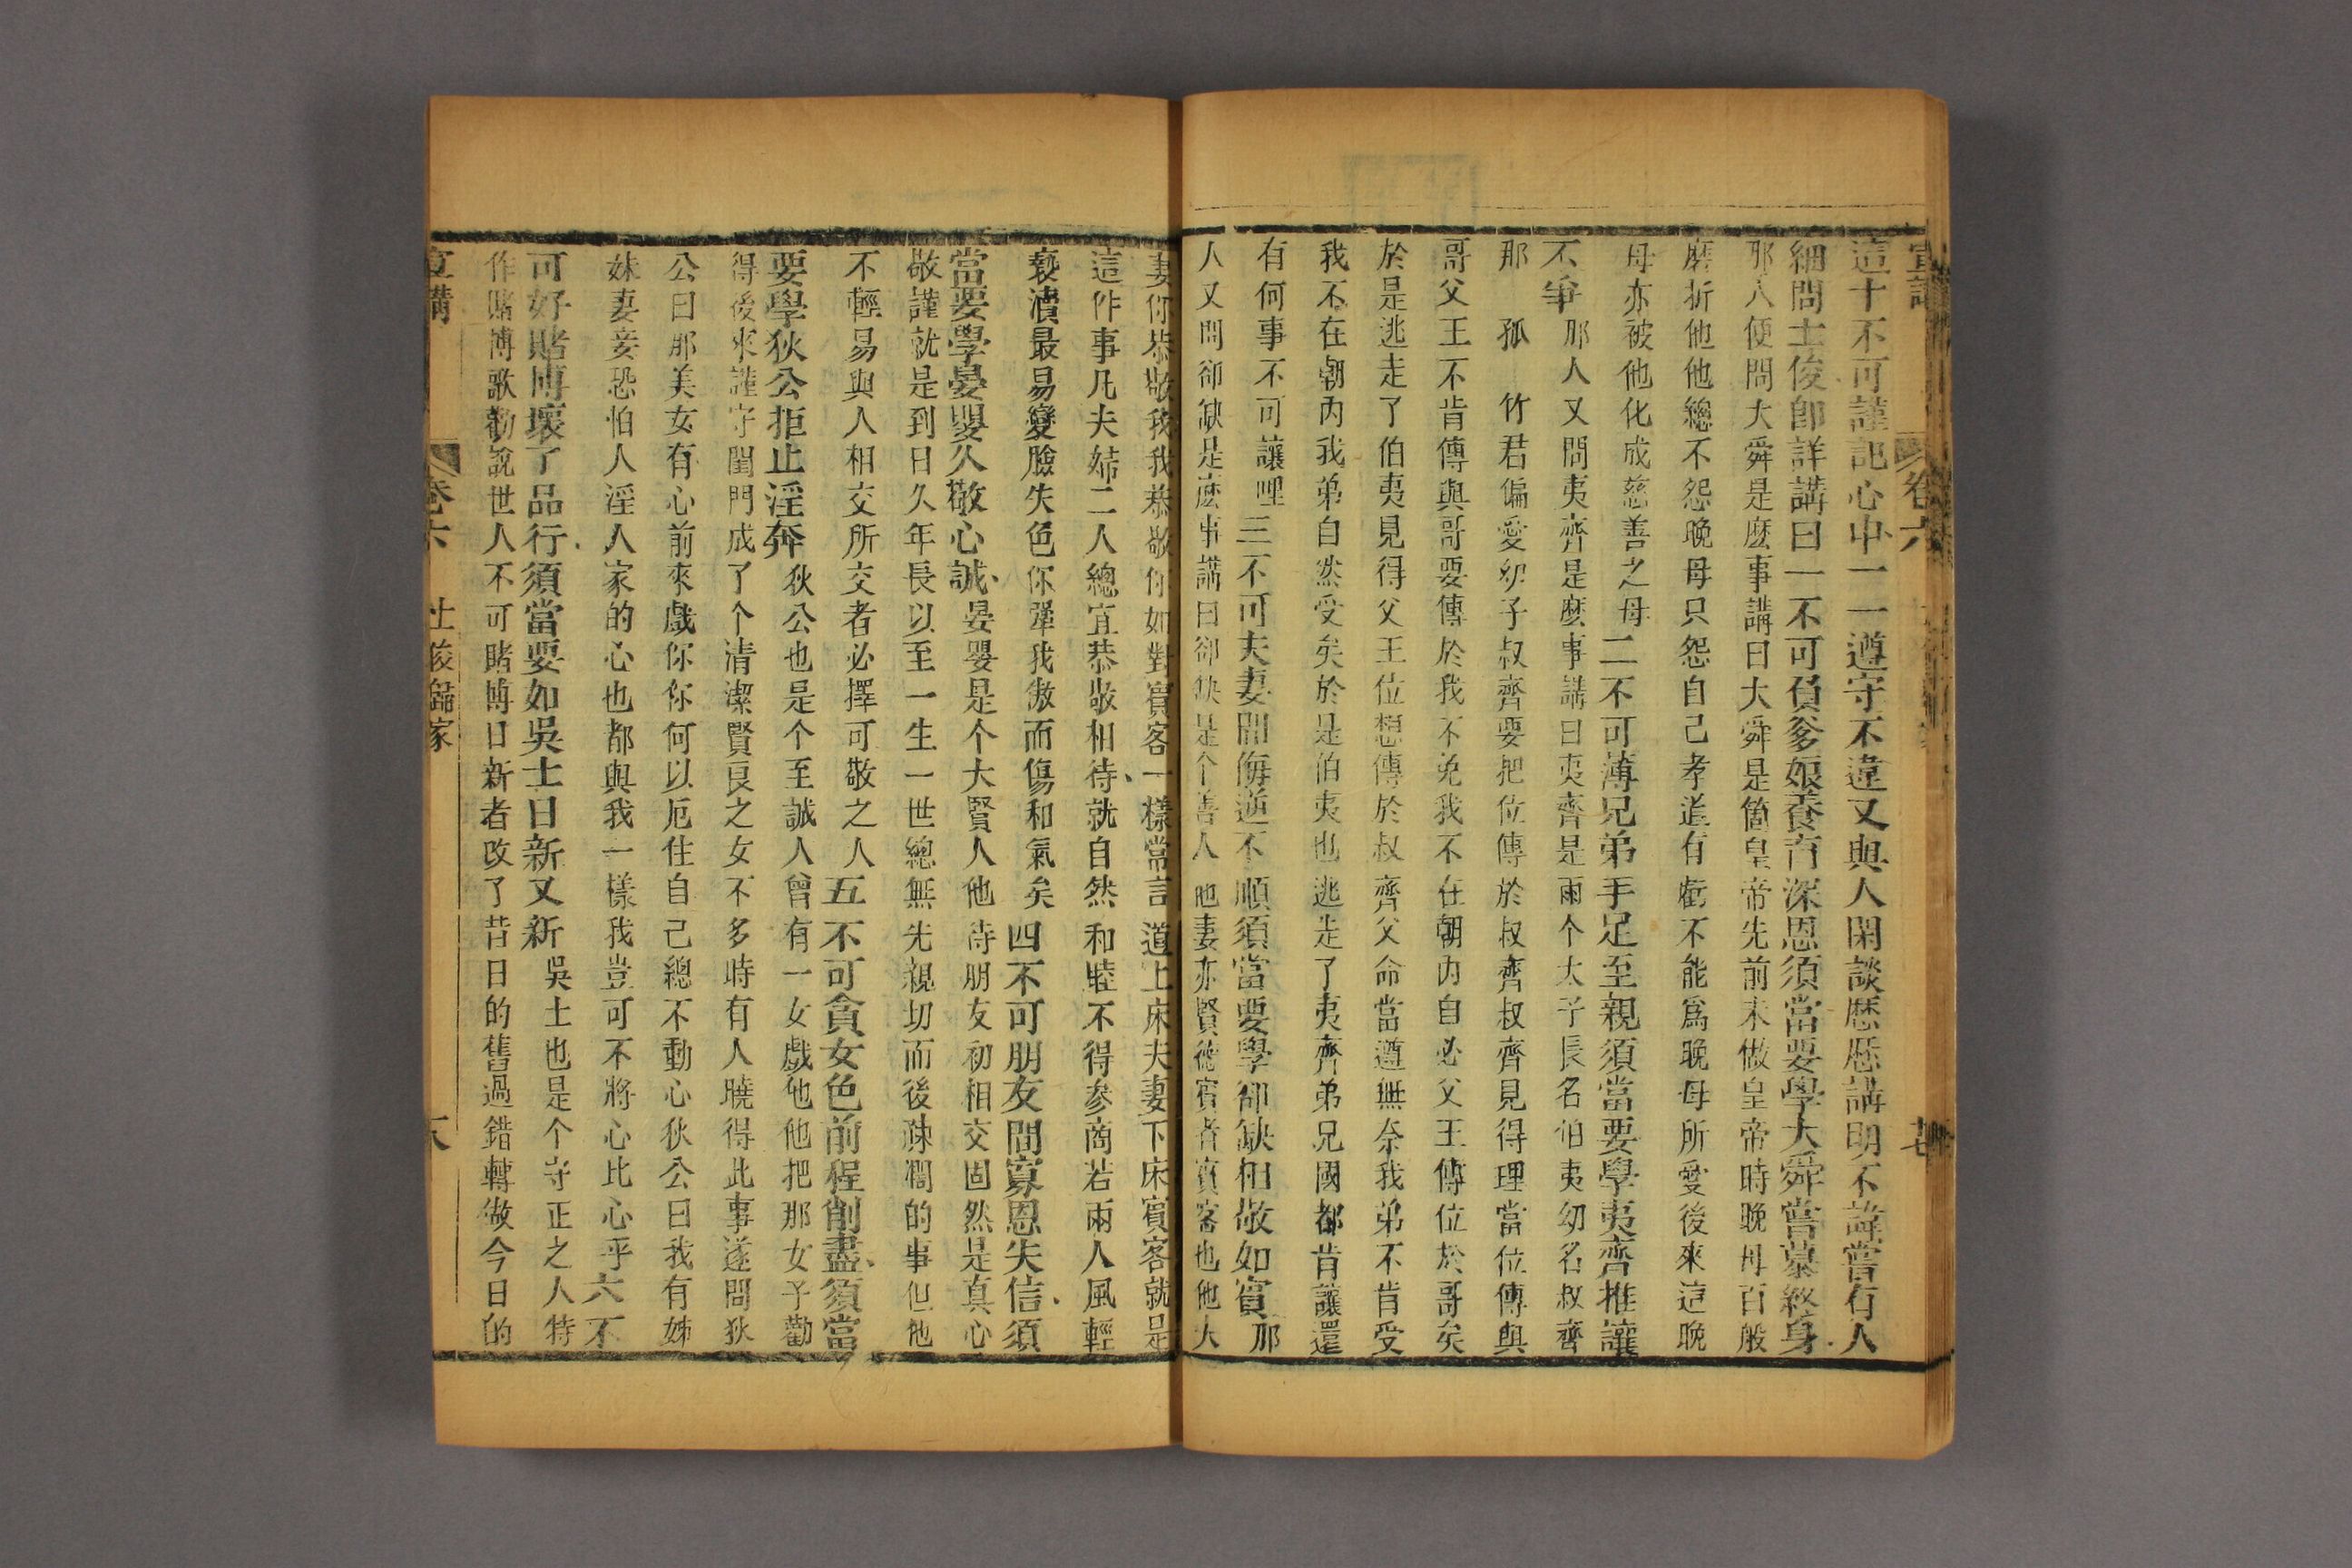 宣講 卷六
這十不可謹記心中一一遵守不違又與人閑談歷歷講明不諱嘗有人
細問士俊卽詳講曰一不可負爹娘養育深恩須當要學大舜嘗慕終身
那人便問大舜是麽事講曰大舜是箇皇帝先前未做皇帝時晚母百般
磨折他他總不怨晚母只怨自己孝道有虧不能爲晚母所愛後來這晚
母亦被他化成慈善之母二不可薄兄弟手足至親須當要學夷齊推讓
不爭那人又問夷齊是麽事講曰夷齊是兩个太子長名伯夷幼名叔齊
那孤竹君偏愛幼子叔齊要把位傳於叔齊叔齊見得理當位傳與
哥父王不肯傳與哥要傳於我不免我不在朝內自必父王傳位於哥矣
於是逃走了伯夷見得父王位想傳於叔齊父命當遵無奈我弟不肯受
我不在朝內我弟自然受矣於是伯夷也逃走了夷齊弟兄國都肯讓還
有何事不可讓哩三不可夫妻間侮逆不順須當要學郤缺相敬如賓那
人又問郤缺是麽事講曰郤缺是个善人他妻亦賢德賓者賓客也他夫
妻你恭敬我我恭敬你如對賓客一樣常言道上床夫妻下床賓客就是
這件事凡夫婦二人總宜恭敬相待就自然和睦不得參商若兩人風輕
褻瀆最易變臉失色你犟我傲而傷和氣矣四不可朋友間寡恩失信須
當要學晏嬰久敬心誠晏嬰是个大賢人他待朋友初相交固然是真心
敬謹就是到日久年長以至一生一世總無先親切而後踈淍的事但他
不輕易與人相交所交者必擇可敬之人五不可貪女色前程削盡須當
要學狄公拒止淫奔狄公也是个至誠人曾有一女戲他他把那女子勸
得後來謹守閨門成了个清潔賢良之女不多時有人曉得此事遂問狄
公曰那美女有心前來戲你你何以厄住自己總不動心狄公曰我有姊
妹妻妾恐怕人淫人家的心也都與我一樣我豈可不將心比心乎六不
可好賭博壞了品行須當要如吳士日新又新吳士也是个守正之人特
作賭博歌勸說世人不可賭博日新者改了昔日的舊過錯轉做今日的
宣講 卷六 士俊歸家